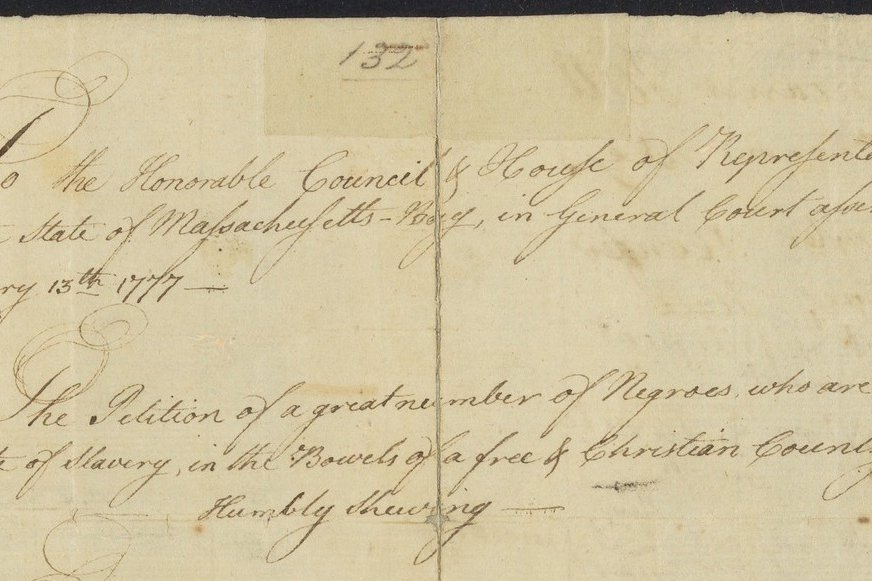 132
To the Honorable Council & House of Represente
State of Massachusetts-Bay, in General Court asse
ry 13th 1777 —
The Petition of a great number of Negroes, who are
of Slavery, in the Bowels of a free & Christian Count
Humbly Shewing —